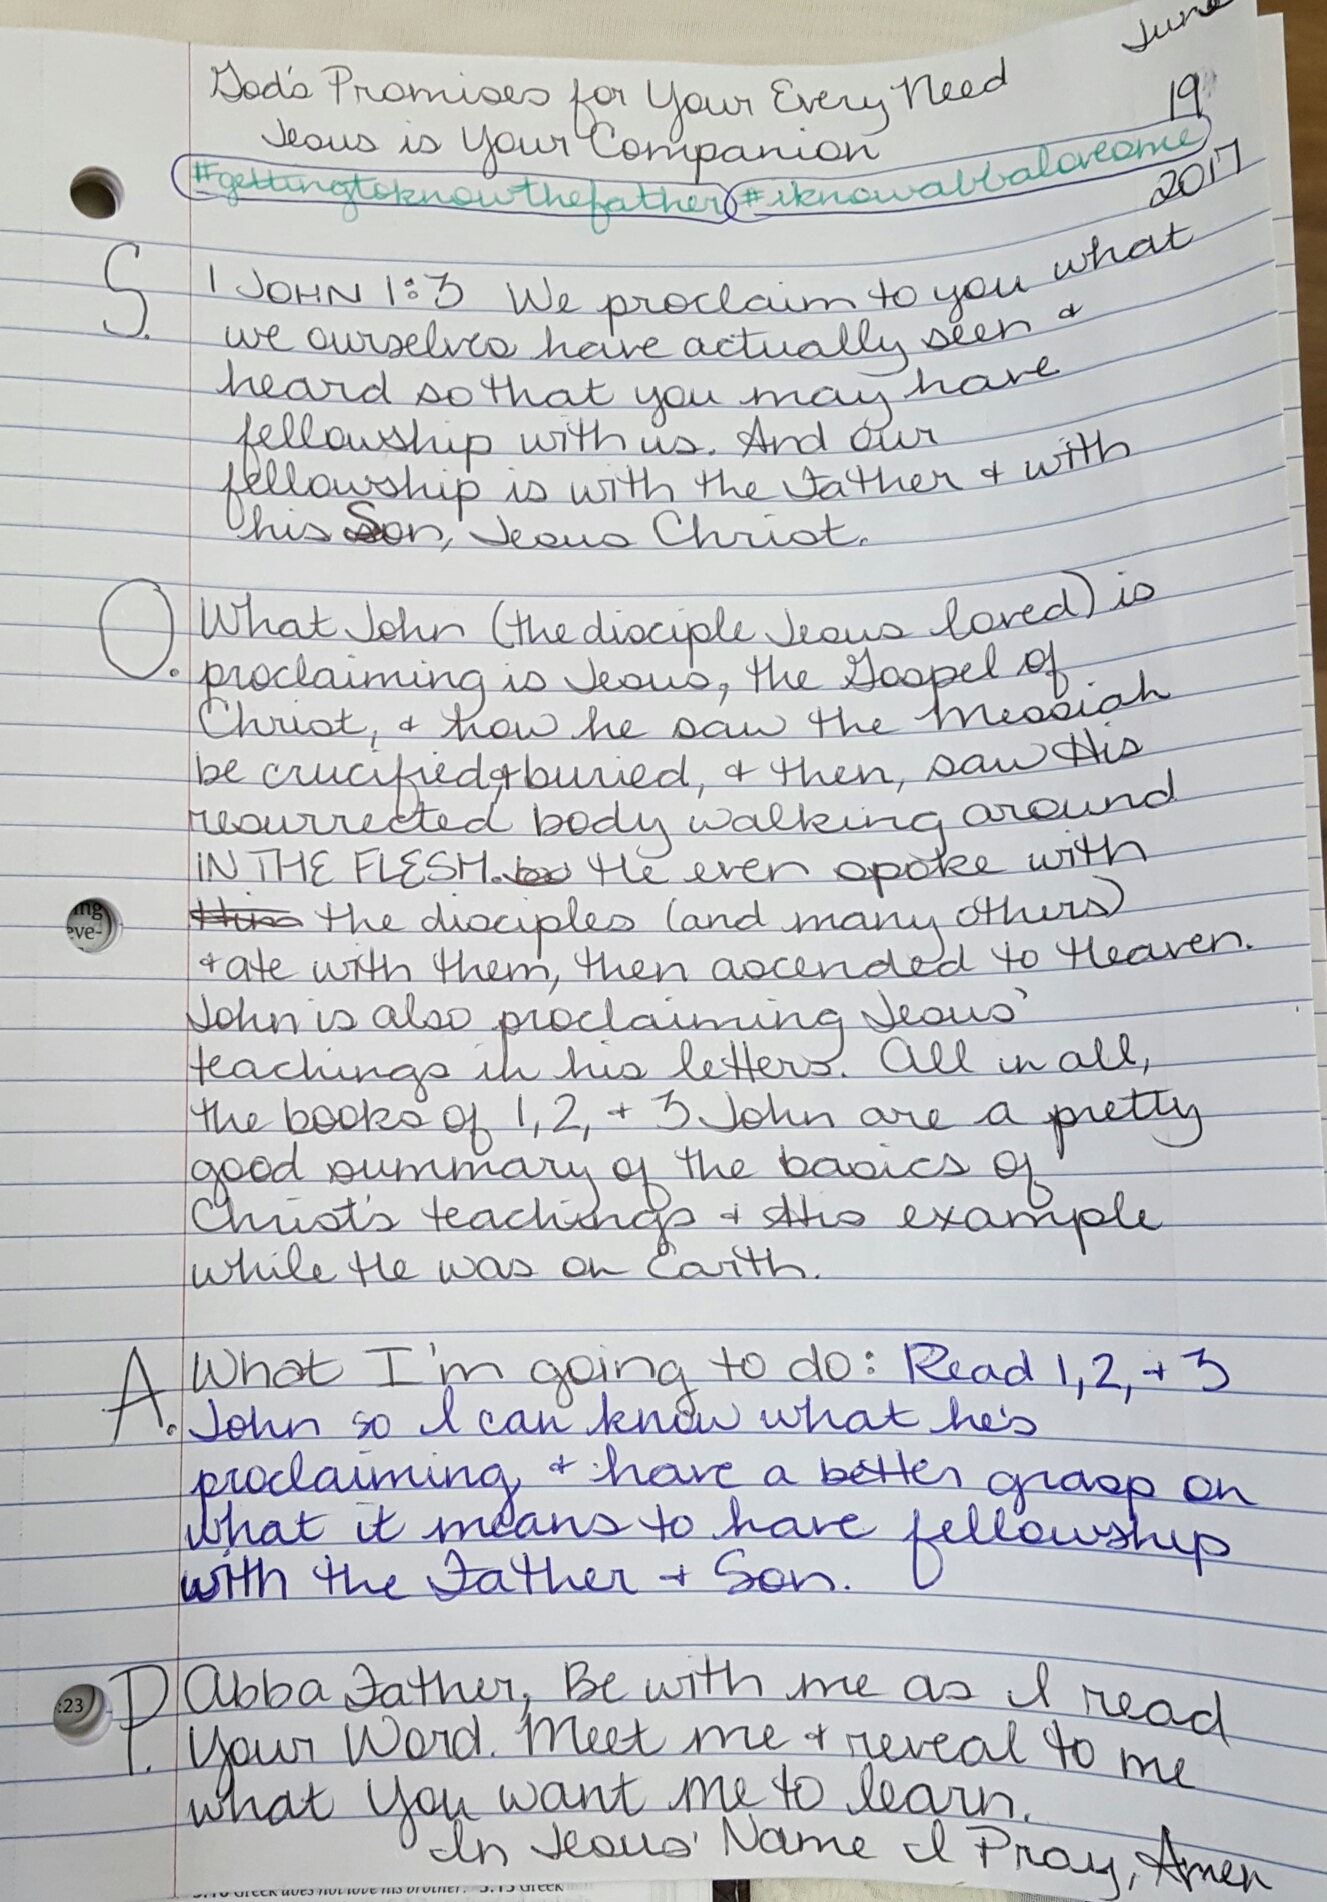 June
19
2017
God's Promises for Your Every Need
Jesus is Your Companion
#gettingtoknowthefather #iknowabbalovesme
S. 1 JOHN 1:3 We proclaim to you what
we ourselves have actually seen &
heard so that you may have
fellowship with us. And our
fellowship is with the Father & with
his Son, Jesus Christ.
O. What John (the disciple Jesus loved) is
proclaiming is Jesus, the Gospel of
Christ, & how he saw the Messiah
be crucified, & buried, & then, saw His
resurrected body walking around
IN THE FLESH. He even spoke with
the disciples (and many others)
& ate with them, then ascended to Heaven.
John is also proclaiming Jesus'
teachings in his letters. All in all,
the books of 1, 2, + 3 John are a pretty
good summary of the basics of
Christ's teachings & His example
while He was on Earth.
A. What I'm going to do: Read 1, 2, + 3
John so I can know what he's
proclaiming & have a better grasp on
what it means to have fellowship
with the Father & Son.
P. Abba Father, Be with me as I read
Your Word. Meet me & reveal to me
what You want me to learn.
In Jesus' Name I Pray, Amen
ing
eve-
:23